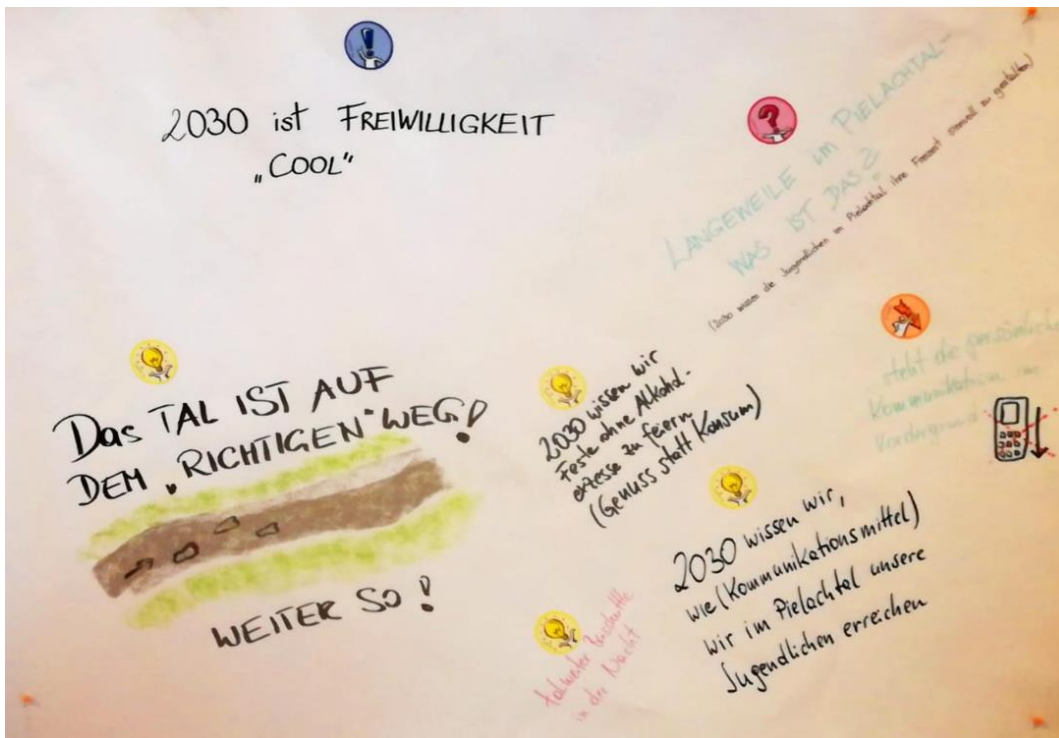 2030 ist FREIWILLIGKEIT
„COOL"
LANGEWEILE im PIELACHTAL -
WAS IST DAS?
(2030 wissen die Jugendlichen im Pielachtal ihre Freizeit sinnvoll zu gestalten)
...steht die persönliche
Kommunikation im
Vordergrund
Das TAL IST AUF
DEM „RICHTIGEN" WEG!
WEITER SO!
2030 wissen wir
Feste ohne Alkohol-
exzesse zu feiern
(Genuss statt Konsum)
2030 wissen wir,
wie (Kommunikationsmittel)
wir im Pielachtal unsere
Jugendlichen erreichen
talweiter
in der Nacht